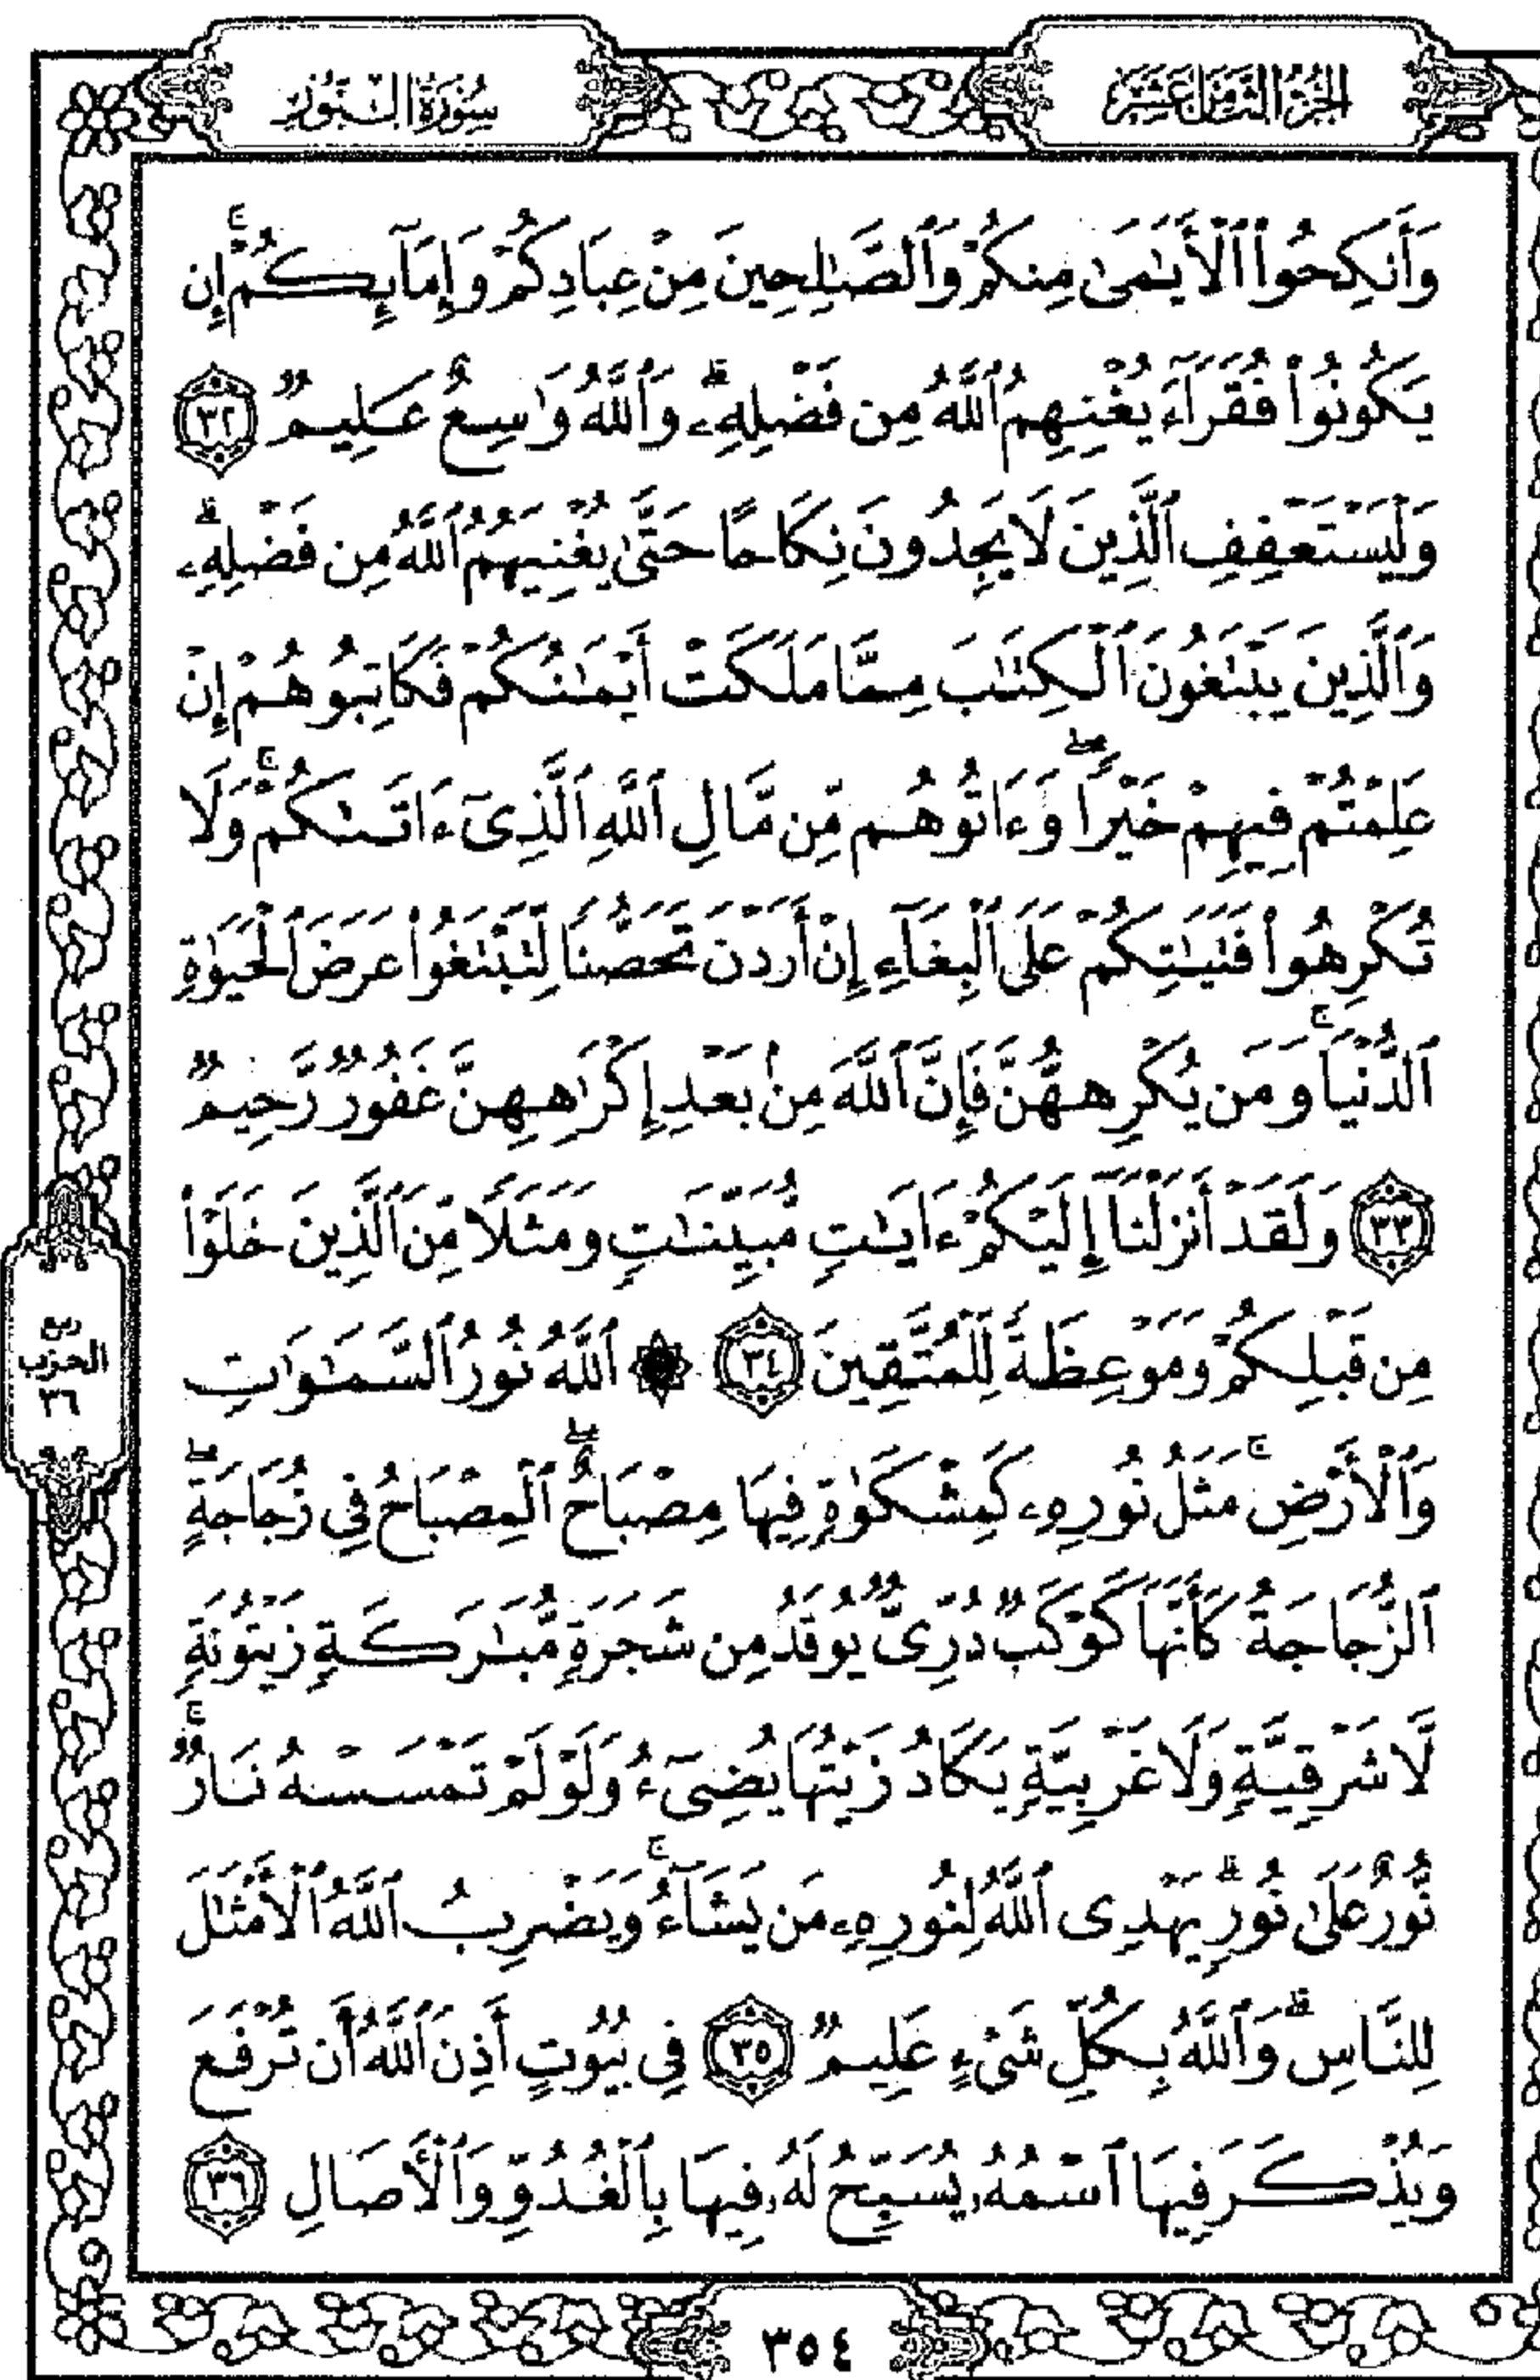 الجزء الثامن عشر
سورة النور
وَأَنكِحُوا۟ ٱلْأَيَٰمَىٰ مِنكُمْ وَٱلصَّٰلِحِينَ مِنْ عِبَادِكُمْ وَإِمَآئِكُمْ ۚ إِن
يَكُونُوا۟ فُقَرَآءَ يُغْنِهِمُ ٱللَّهُ مِن فَضْلِهِۦ ۗ وَٱللَّهُ وَٰسِعٌ عَلِيمٌ ٣٢
وَلْيَسْتَعْفِفِ ٱلَّذِينَ لَا يَجِدُونَ نِكَاحًا حَتَّىٰ يُغْنِيَهُمُ ٱللَّهُ مِن فَضْلِهِۦ ۗ
وَٱلَّذِينَ يَبْتَغُونَ ٱلْكِتَٰبَ مِمَّا مَلَكَتْ أَيْمَٰنُكُمْ فَكَاتِبُوهُمْ إِنْ
عَلِمْتُمْ فِيهِمْ خَيْرًا ۖ وَءَاتُوهُم مِّن مَّالِ ٱللَّهِ ٱلَّذِىٓ ءَاتَىٰكُمْ ۚ وَلَا
تُكْرِهُوا۟ فَتَيَٰتِكُمْ عَلَى ٱلْبِغَآءِ إِنْ أَرَدْنَ تَحَصُّنًا لِّتَبْتَغُوا۟ عَرَضَ ٱلْحَيَوٰةِ
ٱلدُّنْيَا ۚ وَمَن يُكْرِههُّنَّ فَإِنَّ ٱللَّهَ مِنۢ بَعْدِ إِكْرَٰهِهِنَّ غَفُورٌ رَّحِيمٌ
٣٣ وَلَقَدْ أَنزَلْنَآ إِلَيْكُمْ ءَايَٰتٍ مُّبَيِّنَٰتٍ وَمَثَلًا مِّنَ ٱلَّذِينَ خَلَوْا۟
مِن قَبْلِكُمْ وَمَوْعِظَةً لِّلْمُتَّقِينَ ٣٤ ۞ ٱللَّهُ نُورُ ٱلسَّمَٰوَٰتِ
ربع
الحزب
٣٦
وَٱلْأَرْضِ ۚ مَثَلُ نُورِهِۦ كَمِشْكَوٰةٍ فِيهَا مِصْبَاحٌ ۖ ٱلْمِصْبَاحُ فِى زُجَاجَةٍ ۖ
ٱلزُّجَاجَةُ كَأَنَّهَا كَوْكَبٌ دُرِّىٌّ يُوقَدُ مِن شَجَرَةٍ مُّبَٰرَكَةٍ زَيْتُونَةٍ
لَّا شَرْقِيَّةٍ وَلَا غَرْبِيَّةٍ يَكَادُ زَيْتُهَا يُضِىٓءُ وَلَوْ لَمْ تَمْسَسْهُ نَارٌ ۚ
نُّورٌ عَلَىٰ نُورٍ ۗ يَهْدِى ٱللَّهُ لِنُورِهِۦ مَن يَشَآءُ ۚ وَيَضْرِبُ ٱللَّهُ ٱلْأَمْثَٰلَ
لِلنَّاسِ ۗ وَٱللَّهُ بِكُلِّ شَىْءٍ عَلِيمٌ ٣٥ فِى بُيُوتٍ أَذِنَ ٱللَّهُ أَن تُرْفَعَ
وَيُذْكَرَ فِيهَا ٱسْمُهُۥ يُسَبِّحُ لَهُۥ فِيهَا بِٱلْغُدُوِّ وَٱلْءَاصَالِ ٣٦
٣٥٤